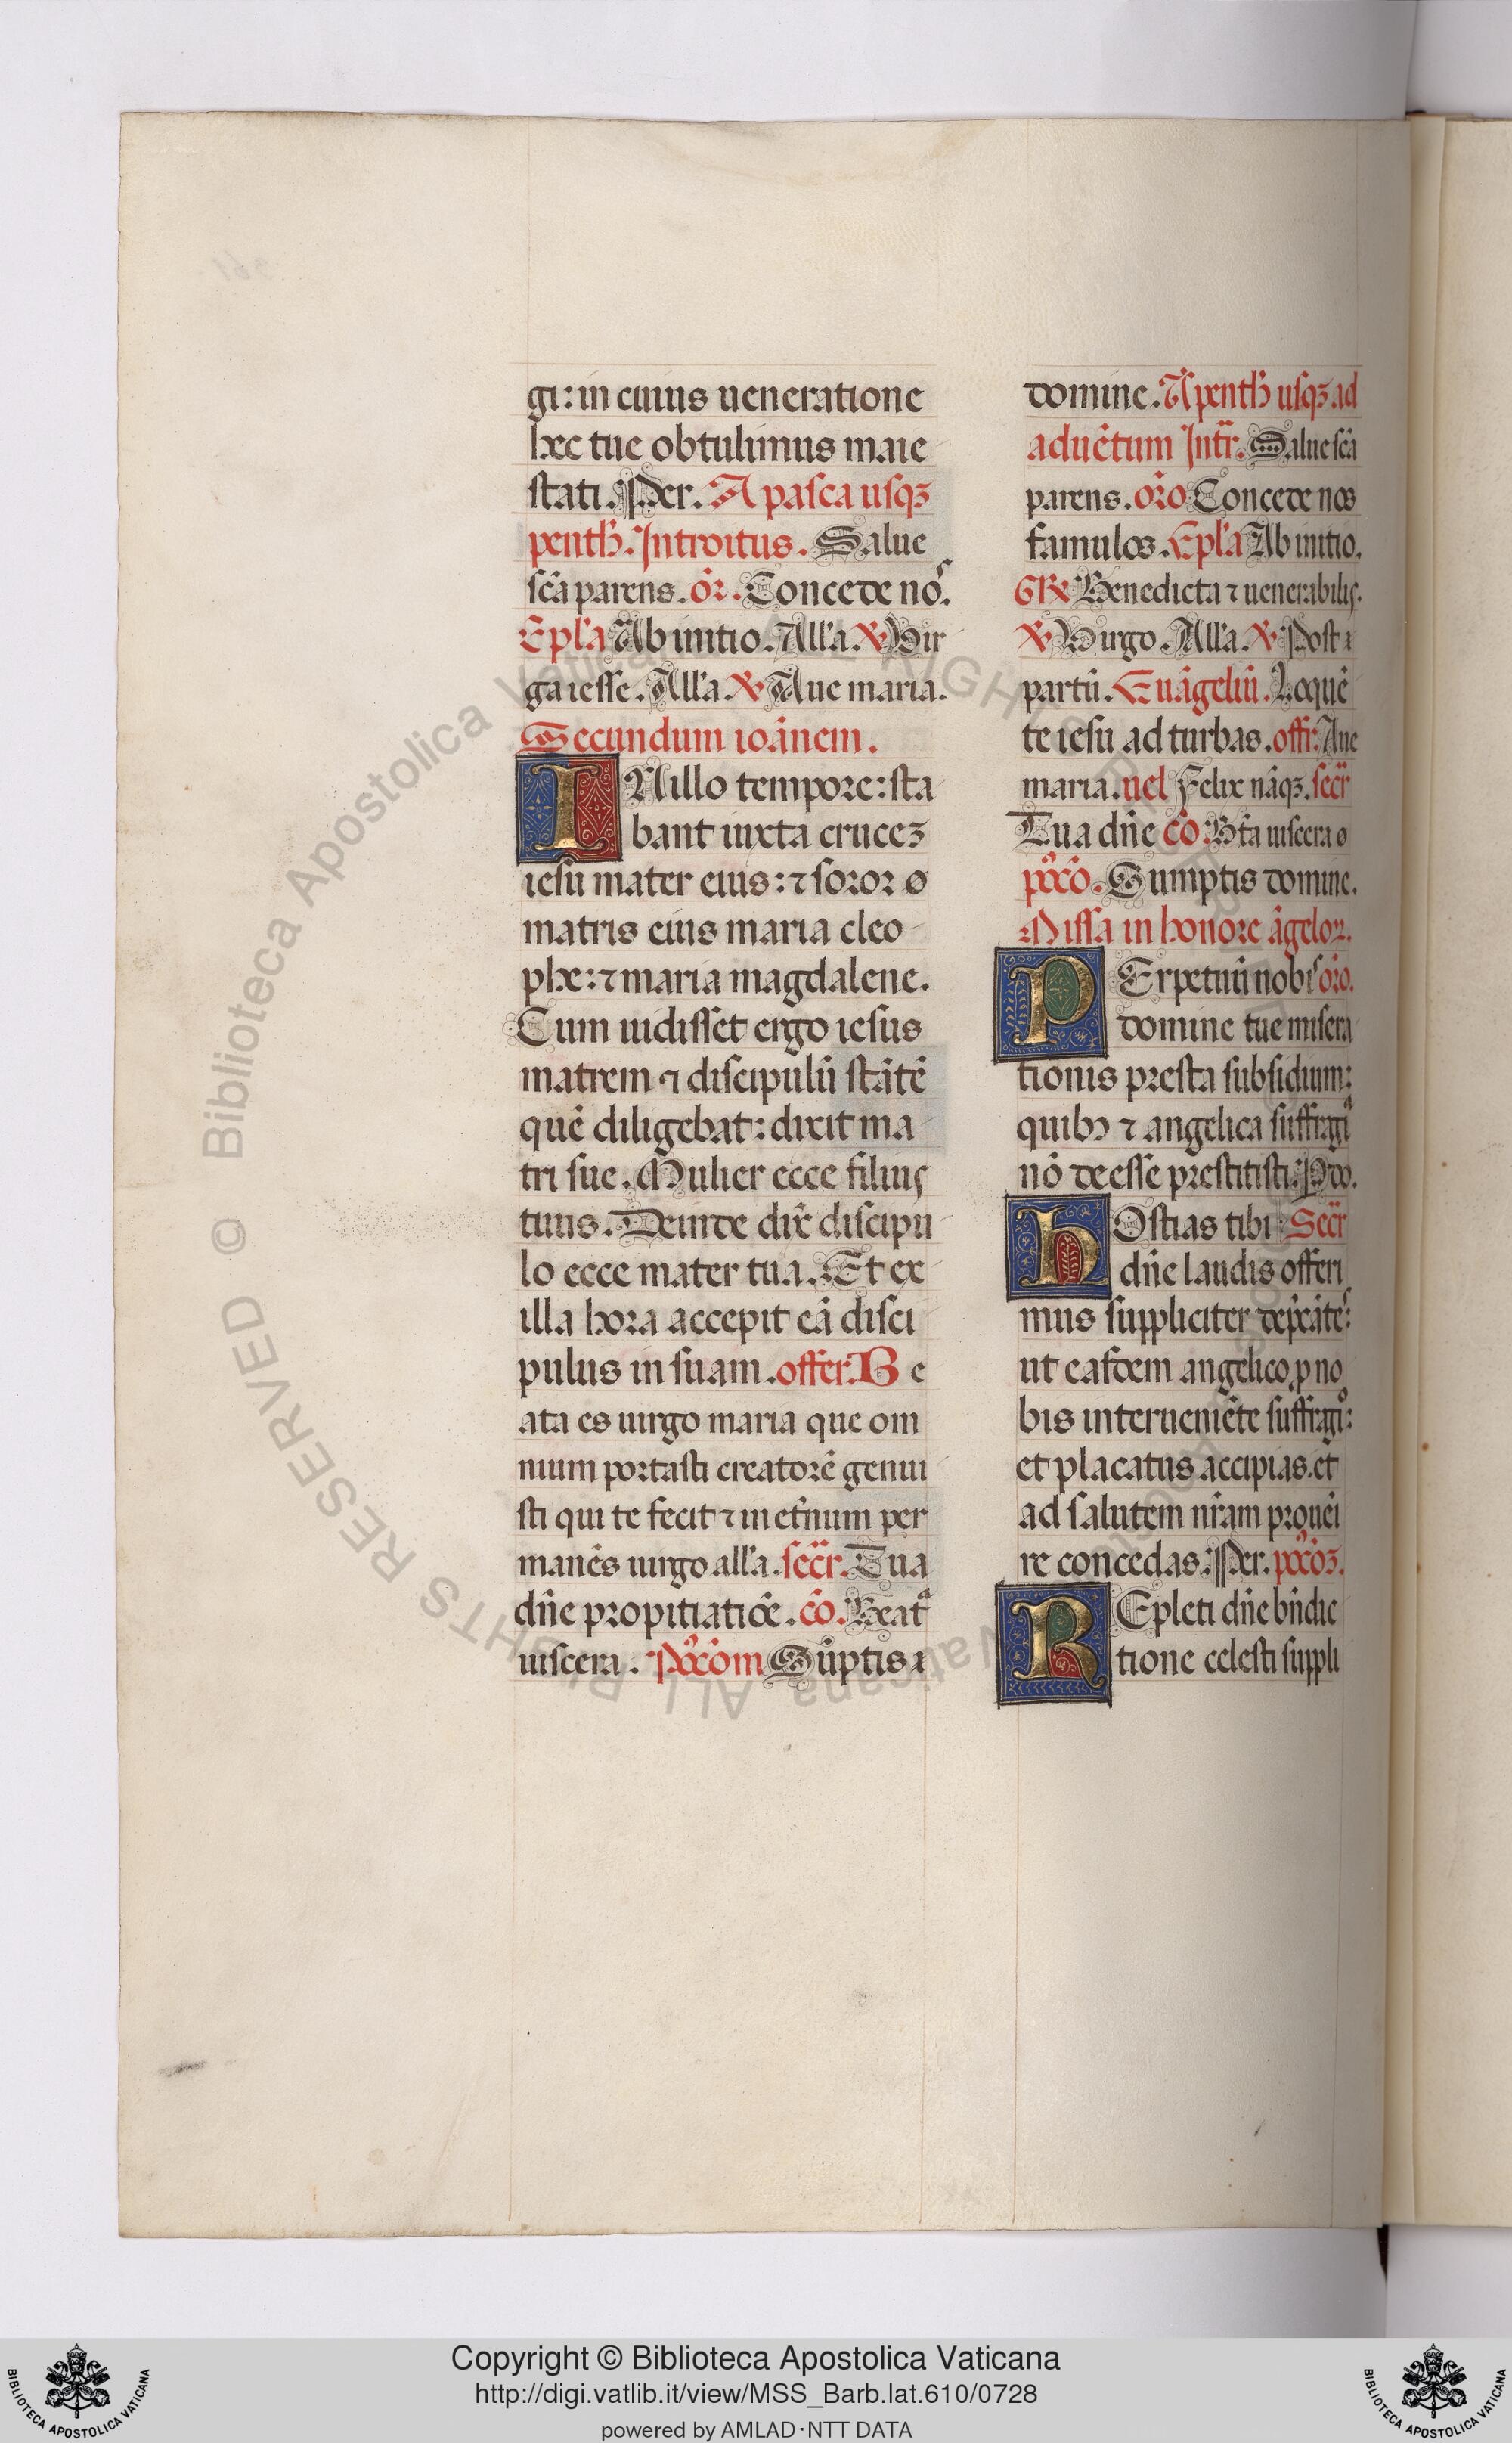 gi: in cuius ueneratione
hec tue obtulimus maie
stati. Per. A pasca usqꝫ
penth̃. Introitus. Salue
sc̃a parens. or̃. Concede noˢ.
Epl̃a Ab initio. All'a. ℣ Uir
ga iesse. All'a. ℣ Aue maria.
Secundum ioãnem.
IN illo tempore: sta
bant iuxta cruceꝫ
iesu mater eius: ⁊ soror
matris eius maria cleo
phe: ⁊ maria magdalene.
Cum uidisset ergo iesus
matrem ⁊ discipulũ stãtẽ
quẽ diligebat: dixit ma
tri sue. Mulier ecce filius
tuus. Deinde dix̃ discipu
lo ecce mater tua. Et ex
illa hora accepit eã disci
pulus in suam. offer. Be
ata es uirgo maria que om
nium portasti creatorẽ genui
sti qui te fecit ⁊ in et̃num per
manẽs uirgo all'a. secr̃. Tua
dñe propitiatiõe. cõ. Beatᵃ
uiscera. Po᷒cõm Sũptis
domine. A penth̃ usqꝫ ad
aduẽtum Intr̃. Salue sc̃a
parens. or̃o Concede nos
famulos. Epl̃a Ab initio.
GR̃ Benedicta ⁊ uenerabilis.
℣ Uirgo. All'a. ℣ Post
partũ. Euãgeliũ. Loquẽ
te iesu ad turbas. offr̃. Aue
maria. uel Felix nãqꝫ. secr̃
Tua dñe cõ. Bt̃a uiscera
po᷒cõ. Sumptis domine.
Missa in honore ãgeloꝝ.
PErpetuũ nobiˢ or̃o.
domine tue misera
tionis presta subsidium:
quibꝰ ⁊ angelica suffragiᵃ
nõ deesse prestitisti. Pdo.
HOstias tibi Secr̃
dñe laudis offeri
mus suppliciter depꝛcãteˢ:
ut easdem angelico ꝓ no
bis interueniẽte suffragiᵒ:
et placatus accipias. et
ad salutem nr̃am prouẽi
re concedas. Per. po᷒cõꝫ.
REpleti dñe bñdic
tione celesti suppli
Copyright © Biblioteca Apostolica Vaticana
http://digi.vatlib.it/view/MSS_Barb.lat.610/0728
powered by AMLAD·NTT DATA
BIBLIOTECA APOSTOLICA VATICANA
BIBLIOTECA APOSTOLICA VATICANA